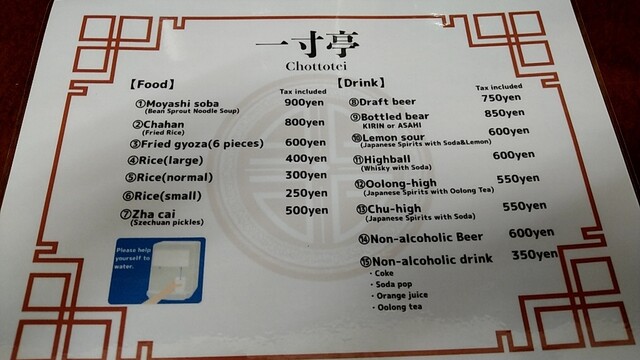 一寸亭
Chottotei
【Food】
Tax included
①Moyashi soba 900yen
(Bean Sprout Noodle Soup)
②Chahan 800yen
(Fried Rice)
③Fried gyoza(6 pieces) 600yen
④Rice(large) 400yen
⑤Rice(normal) 300yen
⑥Rice(small) 250yen
⑦Zha cai 500yen
(Szechuan pickles)
Please help
yourself to
water.
【Drink】
Tax included
⑧Draft beer 750yen
⑨Bottled bear 850yen
KIRIN or ASAHI
⑩Lemon sour 600yen
(Japanese Spirits with Soda&Lemon)
⑪Highball 600yen
(Whisky with Soda)
⑫Oolong-high 550yen
(Japanese Spirits with Oolong Tea)
⑬Chu-high 550yen
(Japanese Spirits with Soda)
⑭Non-alcoholic Beer 600yen
⑮Non-alcoholic drink 350yen
・Coke
・Soda pop
・Orange juice
・Oolong tea